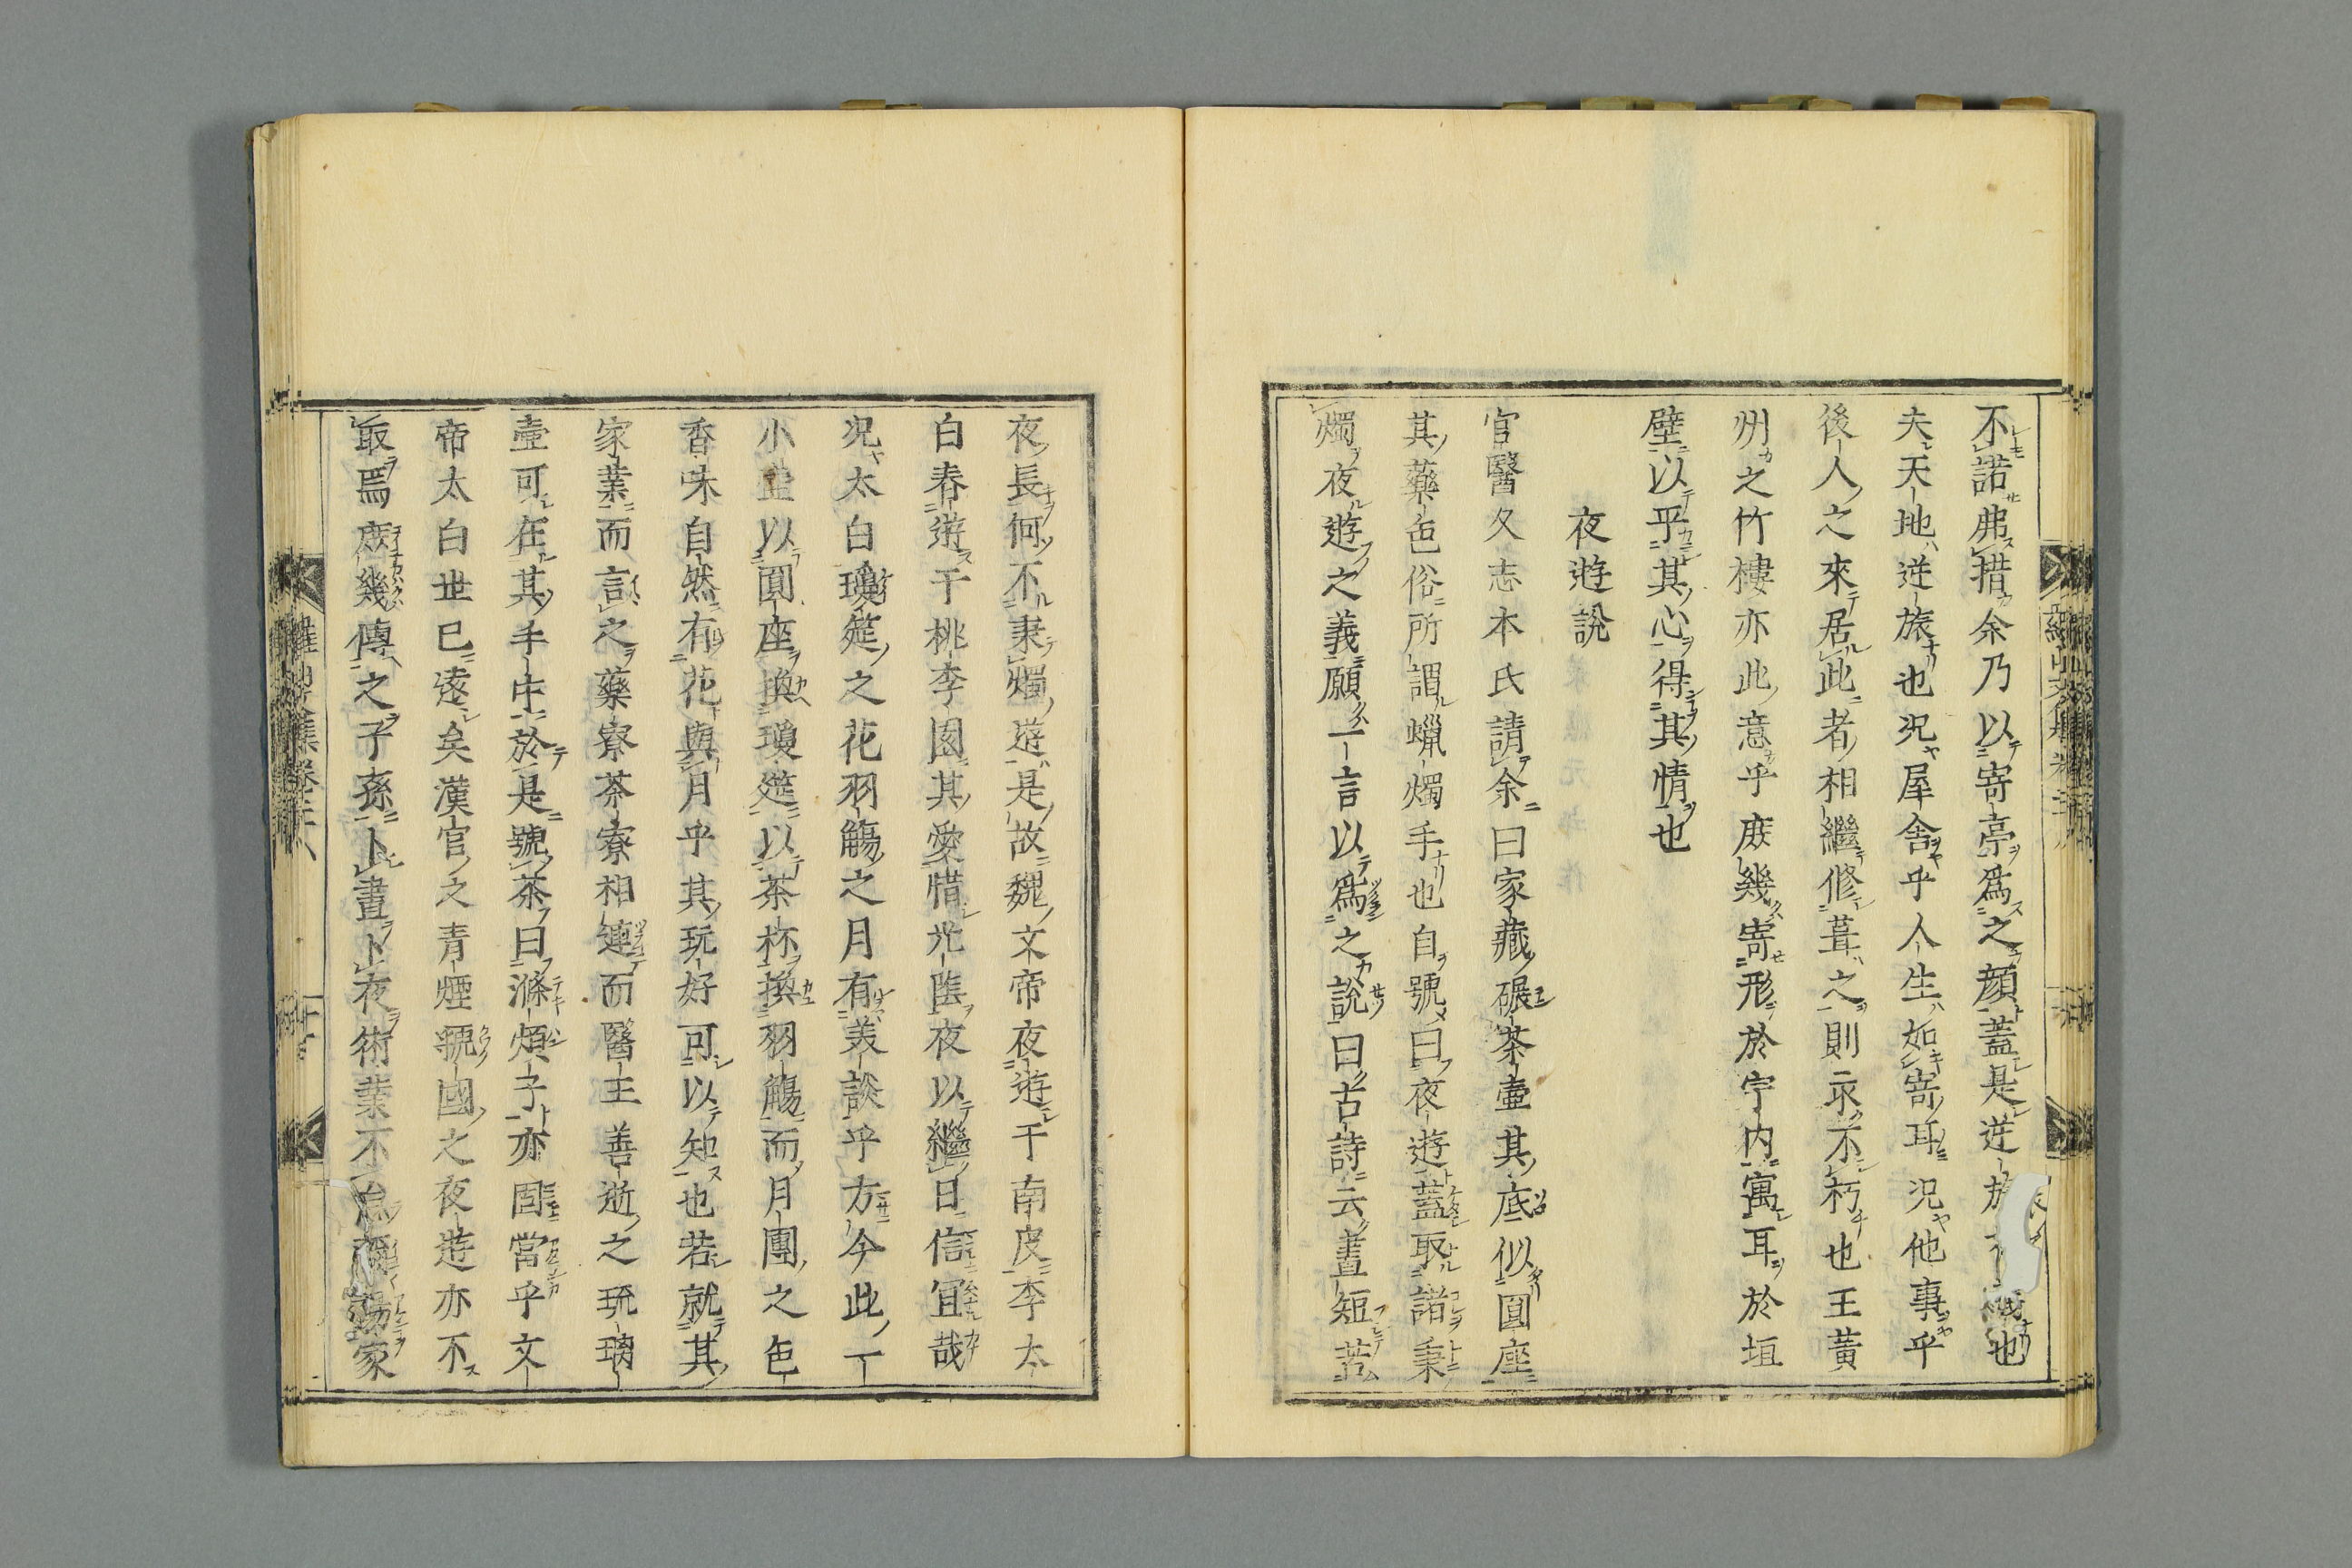 不諾弗措余乃以寄亭爲之顔蓋是逆旅 也
夫天地逆旅也况犀舎乎人生如寄耳况他事乎
後人之來居此者相繼修葺之則永不朽也王黄
州之竹樓亦此意乎庶幾寄形於宇内寓耳於垣
壁以乎其心得其情也
夜遊說
官醫久志本氏請余曰家藏碾茶壷其底似圓座
其藥色俗所謂蠟燭手也自號曰夜遊蓋取諸秉
燭夜遊之義願一言以爲之說曰古詩云晝短苦
夜長何不秉燭遊是故魏文帝夜遊于南皮李太
白春遊于桃李園其愛惜光陰夜以繼日信冝哉
况太白瓊筵之花羽觴之月有羨談乎方今此一
小壷以圓座換瓊筵以茶杯換羽觴而月團之色
香味自然有花與月乎其玩好可以知也若就其
家業而言之藥寮茶寮相連而醫王善逝之琉璃
壷可在其手中於是號茶曰滌煩子亦固當乎文
帝太白世已遠矣漢官之青煙虢國之夜遊亦不
取焉庶幾傳之子孫卜晝卜夜術業不怠 家